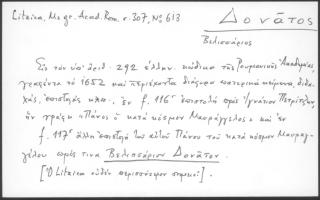 Litzica, Ms gr. Acad. Rom. σ. 307, Νο 613
Δονᾶτος
Βελισσάριος
Εἰς τὸν ὑπ' ἀριθ. 292 ἑλλην. κώδικα τῆς Ρουμανικῆς Ἀκαδημίας,
γραφέντα τὸ 1652 καὶ περιέχοντα διάφορα ἐκκλησιαστικὰ κείμενα, διδα-
χάς, ἐπιστολὰς κλπ. ἐν f. 116 ἐπιστολὴ πρὸς Ἰγνάτιον Πετρίτζην,
ἣν γράφει «Πάνος ὁ κατὰ κόσμον Μαυράγγελος» καὶ ἐν
f. 117 ἄλλη ἐπιστολὴ τοῦ αὐτοῦ Πάνου τοῦ κατὰ κόσμον Μαυραγ-
γέλου πρός τινα Βελισσάριον Δονᾶτον.
[Ὁ Litzica οὐδὲν περισσότερον σημειοῖ].